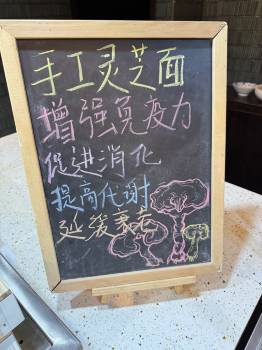 手工灵芝面
增强免疫力
促进消化
提高代谢
延缓衰老